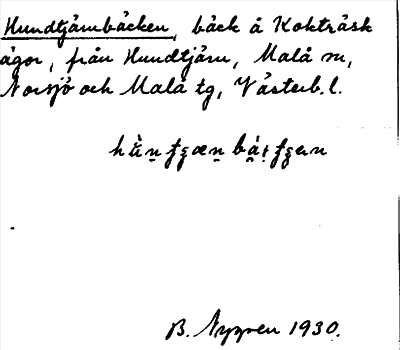 Hundtjärnbäcken, bäck å Kokträsk
ägor, från Hundtjärn, Malå sn,
Norsjö och Malå tg, Västerb. l.
B. Nygren 1930.